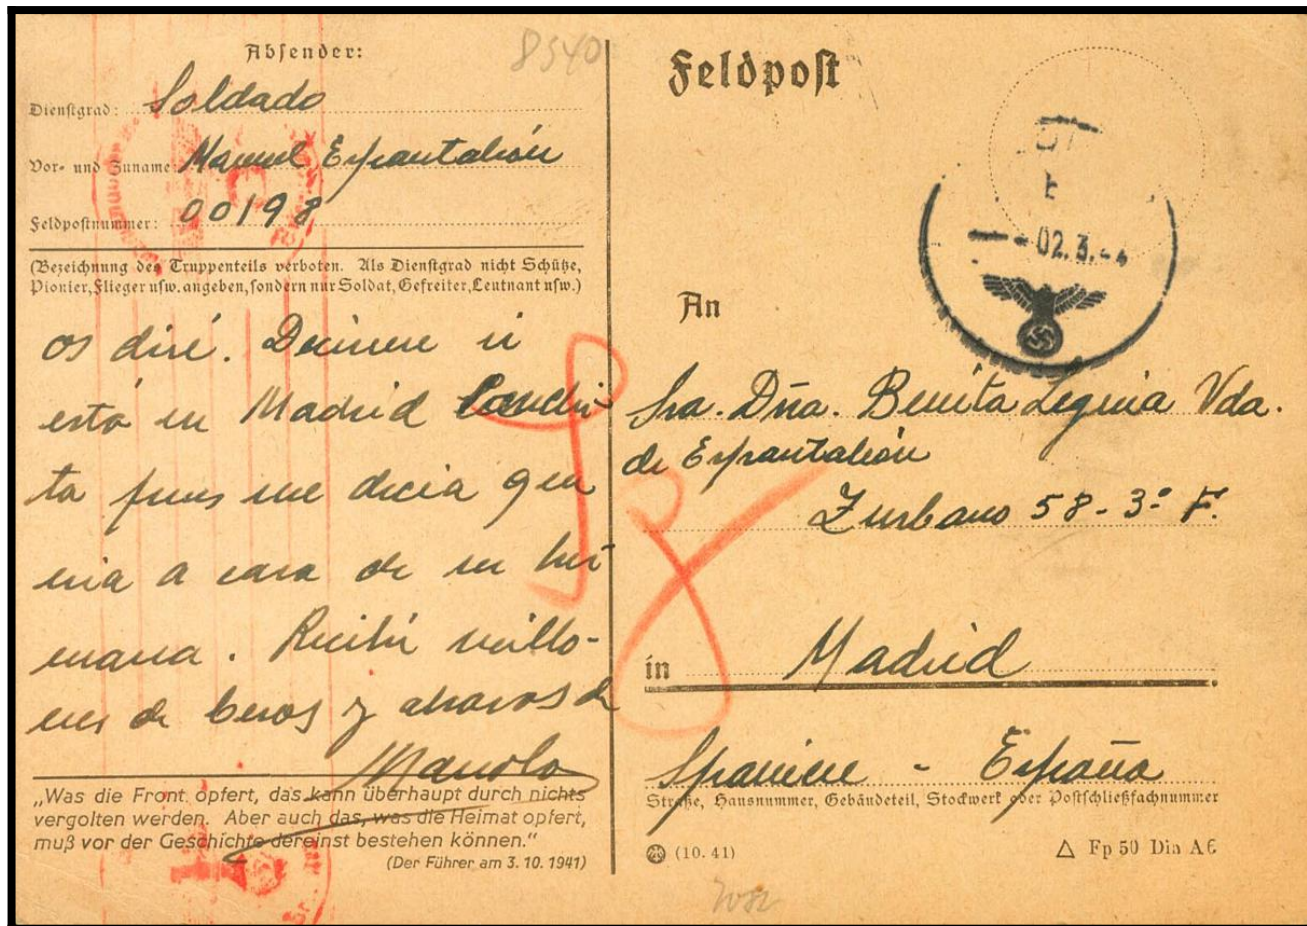 Absender:
8540
Dienstgrad: Soldado
Vor- und Zuname: Manuel Espantaleón
Feldpostnummer: 00198
(Bezeichnung des Truppenteils verboten. Als Dienstgrad nicht Schütze,
Pionier, Flieger usw. angeben, sondern nur Soldat, Gefreiter, Leutnant usw.)
os diré. Decirme si
está en Madrid Conchi
ta pues me decia que
iria a casa de su her
mana. Recibir millo-
nes de besos y abrazos de
Manolo
„Was die Front opfert, das kann überhaupt durch nichts
vergolten werden. Aber auch das, was die Heimat opfert,
muß vor der Geschichte dereinst bestehen können.“
(Der Führer am 3. 10. 1941)
Feldpost
02.3.-4
An
Sra. Dña. Benita Leguia Vda.
de Espantaleón
Zurbano 58-3º F.
in Madrid
Spanien - España
Straße, Hausnummer, Gebäudeteil, Stockwerk oder Postschließfachnummer
(10. 41)
△ Fp 50 Din A6